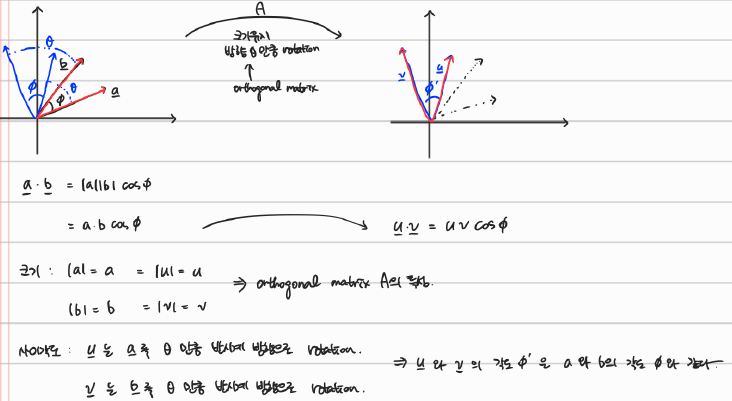 A
크기유지
방향 θ 만큼 rotation
↑
orthogonal matrix
θ
b
ϕ
θ
ϕ
a
v
u
ϕ'
a · b = |a||b| cos ϕ
= a·b cos ϕ
u · v = u v cos ϕ
크기 : |a| = a = |u| = u
|b| = b = |v| = v
⇒ orthogonal matrix A의 특징.
사이각도 : u 는 a 축 θ 만큼 반시계 방향으로 rotation.
v 는 b 축 θ 만큼 반시계 방향으로 rotation.
⇒ u 와 v 의 각도 ϕ' 은 a 와 b의 각도 ϕ 와 같다.